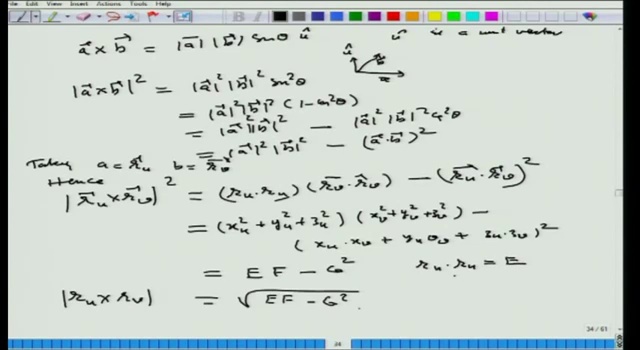 View Insert Actions Tools Help
a⃗ × b⃗ = |a⃗| |b⃗| sinθ û    û is a unit vector
|a⃗×b⃗|² = |a⃗|² |b⃗|² sin²θ
= |a⃗|² |b⃗|² (1 − cos²θ)
= |a⃗|² |b⃗|² − |a⃗|² |b⃗|² cos²θ
= |a⃗|² |b⃗|² − (a⃗·b⃗)²
Taking a = r⃗u b = r⃗v
Hence
|r⃗u × r⃗v|² = (ru·ru) (r⃗v·r⃗v) − (r⃗u·r⃗v)²
= (xu² + yu² + zu²) (xv² + yv² + zv²) −
(xu·xv + yu yv + zu·zv)²
= EF − G²    ru·ru = E
|ru × rv| = √(EF − G²).
34 / 61
34